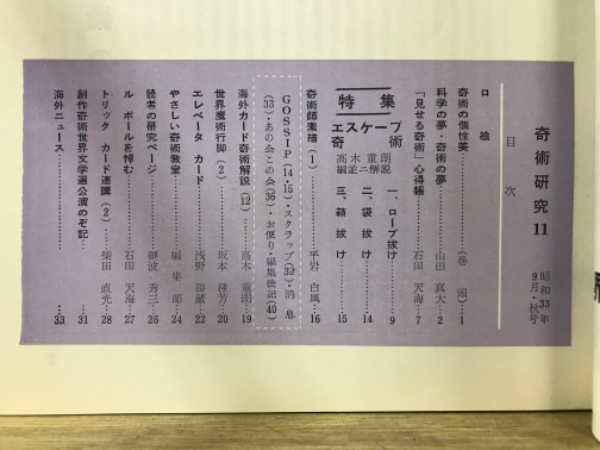 奇術研究 11
昭和33年
9月・秋号
目次
口絵
奇術の個性美……………(巻頭)…1
科学の夢・奇術の夢………山田 真大…2
「見せる奇術」心得帳………石田 天海…7
特集
エスケープ
奇術
高木重朗
編並ニ解説
一、ロープ抜け……9
二、袋抜け……14
三、箱抜け……15
奇術師素描(1)………平岩 白風…16
GOSSIP(14・15)・スクラップ(32)・消息
(33)・あの会この会(36)・お便り・編集後記(40)
海外カード奇術解説(12)……高木 重朗…19
世界魔術行脚(2)………坂本 種芳…20
エレベータ カード………浅野 勝蔵…22
やさしい奇術教室………編集部…24
読者の研究ページ………難波 秀三…26
ル ポールを悼む………石田 天海…27
トリック カード連講(2)………柴田 直光…28
創作奇術世界文学選公演のぞ記……………31
海外ニュース……………33